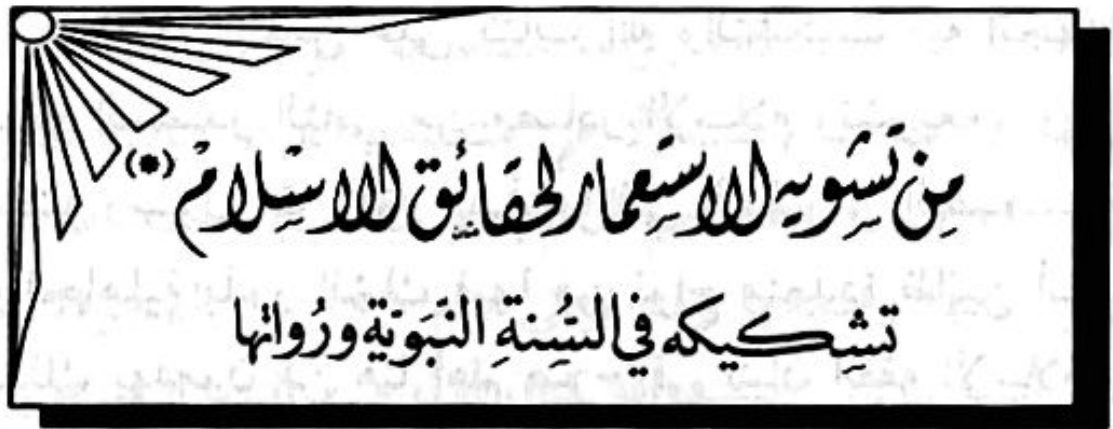 مِن تَشويه الاستعمار لحقائق الاسلام (*)
تشكيكه في السُّنةِ النَبَويَّة ورُواتها